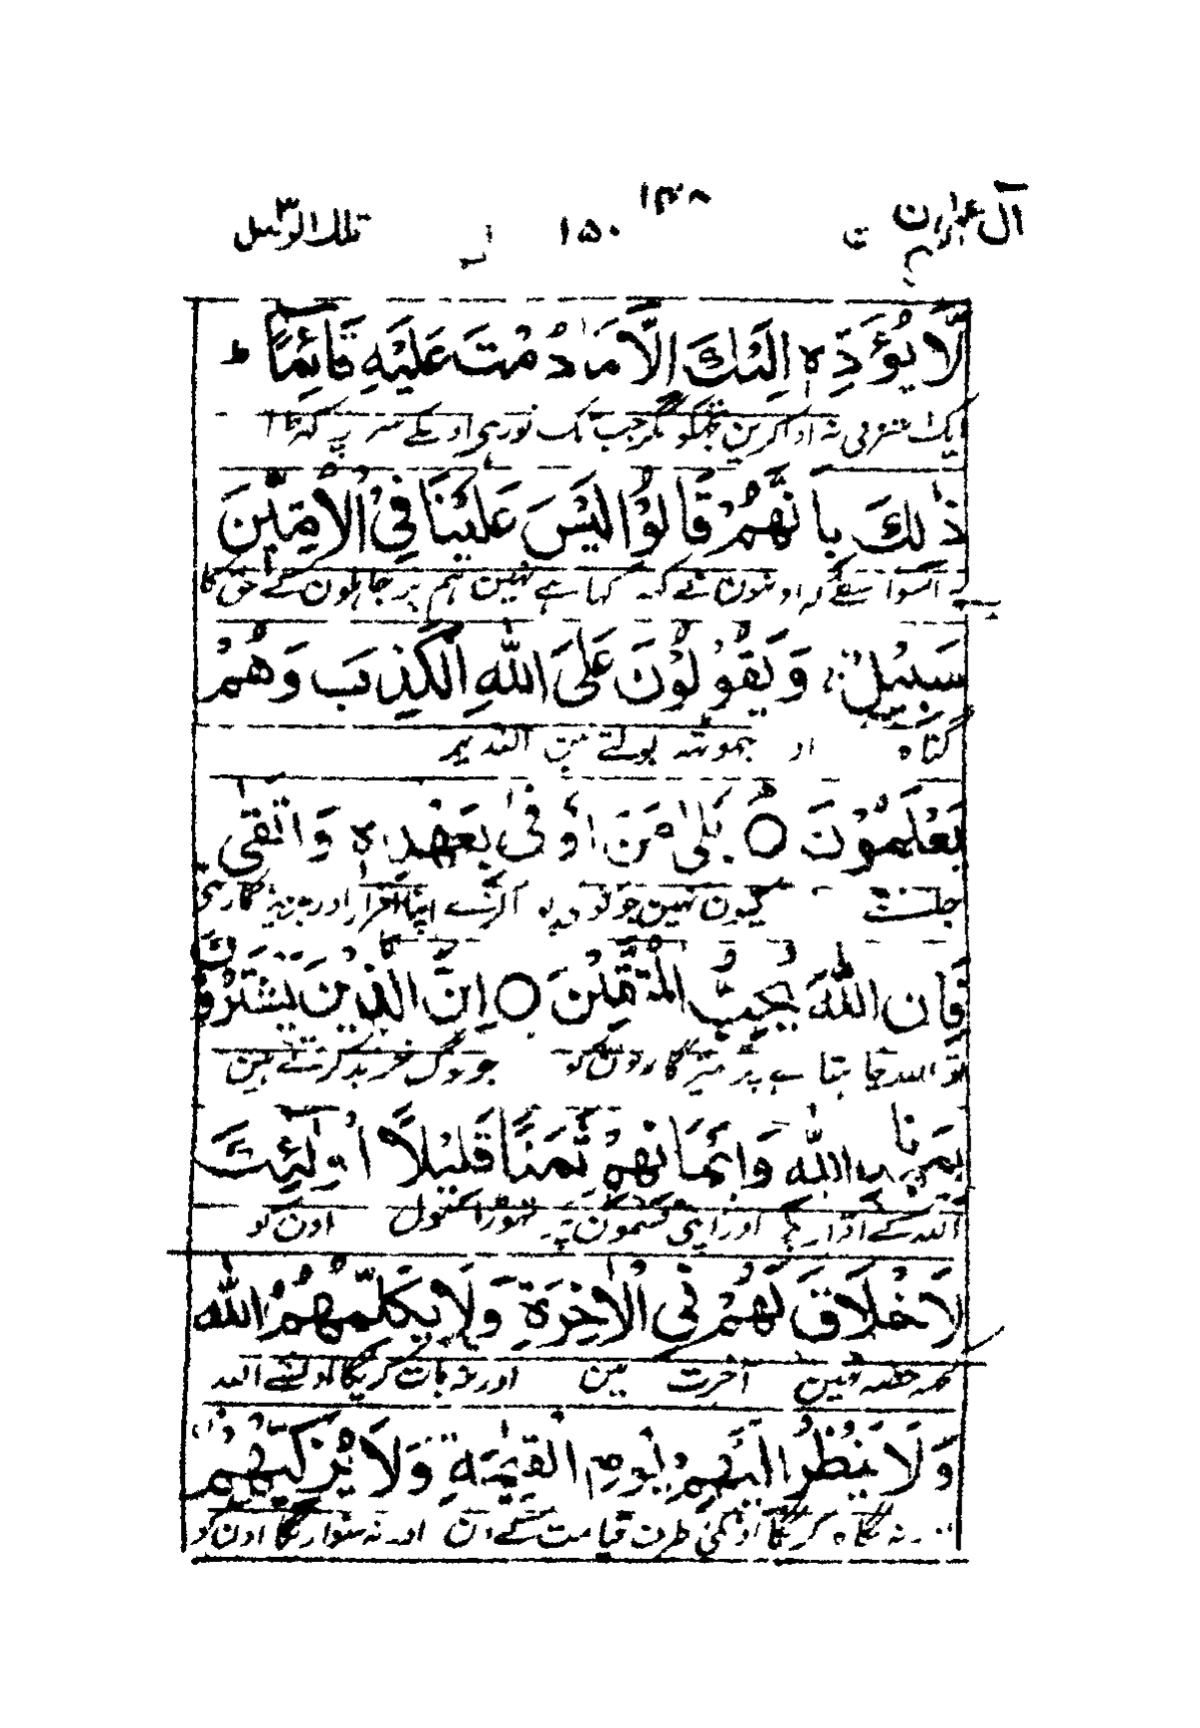 آل عمران ۳ ۱۵۰ ۱۴۸ تلك الرسل ۳
لَّا يُؤَدِّهٖ اِلَيْكَ اِلَّا مَا دُمْتَ عَلَيْهِ قَآئِمًا ط
ایک اشرفی نہ ادا کرین تجھکو مگر جب تک تو رہی اوسکے سر پر کھڑا
ذٰلِكَ بِاَنَّهُمْ قَالُوْا لَيْسَ عَلَيْنَا فِى الْاُمِّيّٖنَ
اسواسطے کہ اونهون نے کہا ہے نہین ہم پر جاہلون کے حق کا
سَبِيْلٌ وَيَقُوْلُوْنَ عَلَى اللّٰهِ الْكَذِبَ وَهُمْ
گناہ اور جھوٹھ بولتے ہین اللہ پر
يَعْلَمُوْنَ ○ بَلٰى مَنْ اَوْفٰى بِعَهْدِهٖ وَاتَّقٰى
جانتے کیون نہین جو کوئی پورا کرے اپنا اقرار اور پرہیزگار ہی
فَاِنَّ اللّٰهَ يُحِبُّ الْمُتَّقِيْنَ ○ اِنَّ الَّذِيْنَ يَشْتَرُوْنَ
تو اللہ چاہتا ہے پرہیزگارون کو جو لوگ خرید کرتے ہین
بِعَهْدِ اللّٰهِ وَاَيْمَانِهِمْ ثَمَنًا قَلِيْلًا اُولٰٓئِكَ
اللہ کے اقرار پر اور اپنی قسمون پر تھوڑا مول اون کو
لَا خَلَاقَ لَهُمْ فِى الْاٰخِرَةِ وَلَا يُكَلِّمُهُمُ اللّٰهُ
کچھ حصہ نہین آخرت مین اور نہ بات کریگا اونسے اللہ
وَلَا يَنْظُرُ اِلَيْهِمْ يَوْمَ الْقِيٰمَةِ وَلَا يُزَكِّيْهِمْ
نہ نگاہ کریگا اونکی طرف قیامت کے دن اور نہ سنواریگا اون کو